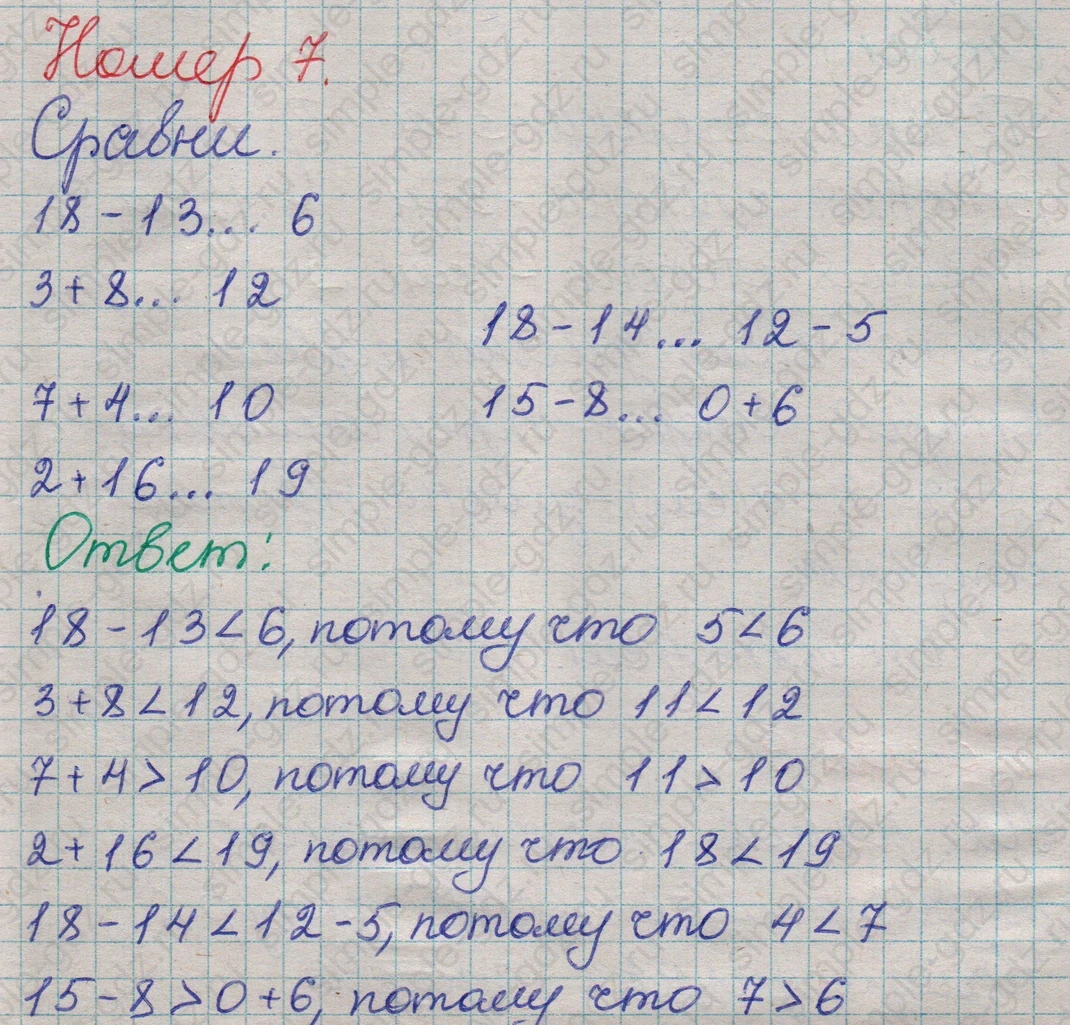 Номер 7.
Сравни.
18-13... 6
3+8... 12
18-14... 12-5
7+4... 10
15-8... 0+6
2+16... 19
Ответ:
18-13<6, потому что 5<6
3+8<12, потому что 11<12
7+4>10, потому что 11>10
2+16<19, потому что 18<19
18-14<12-5, потому что 4<7
15-8>0+6, потому что 7>6
simple-gdz.ru